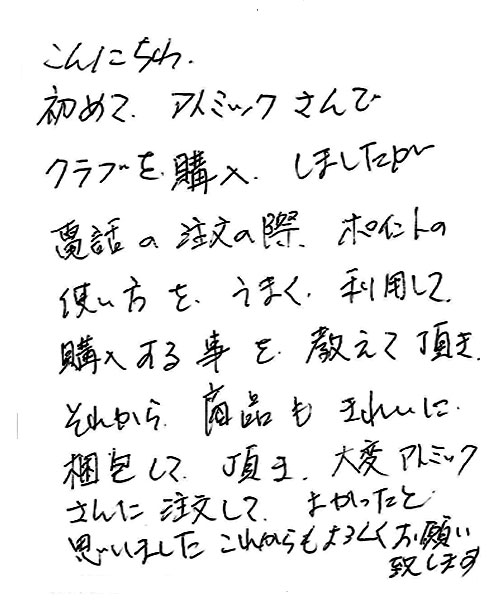 こんにちわ.
初めて、アトミックさんで
クラブを購入、しましたが
電話の注文の際、ポイントの
使い方を、うまく、利用して、
購入する事を、教えて頂き、
それから、商品もきれいに、
梱包して、頂き、大変アトミック
さんに注文して、よかったと
思いました これからもよろしくお願い
致します